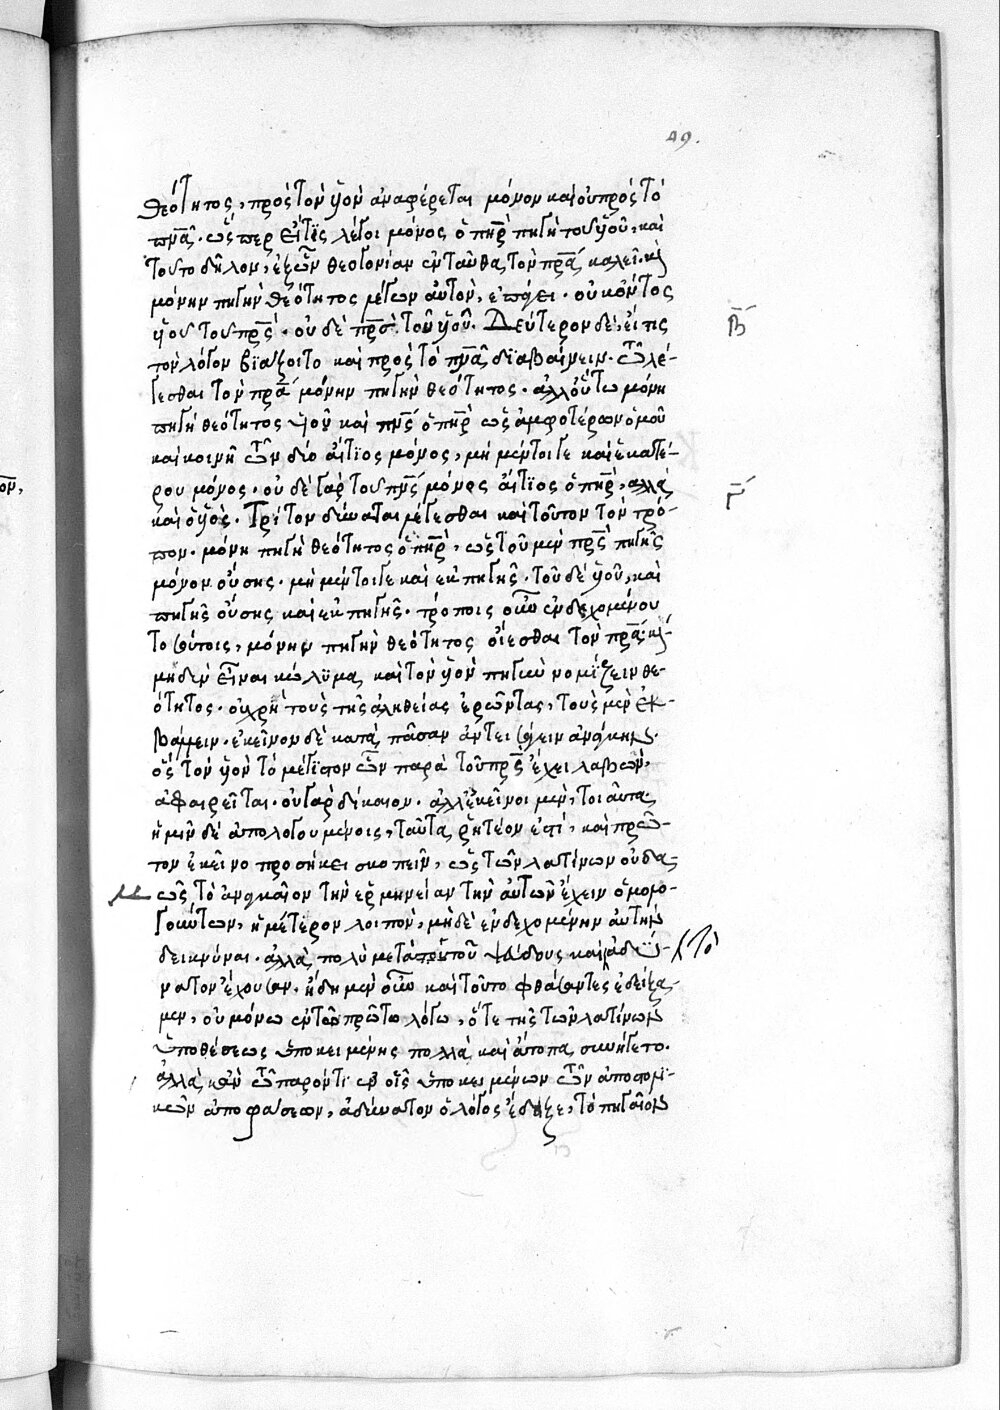 49.
θεότητος, πρὸς τὸν ὑὸν ἀναφέρεται μόνον καὶ οὐ πρὸς τὸ
πνᾶ. ὥσπερ εἴ τις λέγοι μόνος ὁ πηρ πηγὴ τοῦ ὑοῦ, καὶ
τοῦτο δῆλον, ἐξ ὧν θεογονίαν ἐνταῦθα τὸν πρα καλεῖ. καὶ
μόνην πηγὴν θεότητος λέγων αὐτὸν, ἐπάγει. οὐκ ὄντος
ὑοῦ τοῦ πρς. οὐδὲ πρσ τοῦ ὑοῦ. Δεύτερον δὲ, εἴ τις
τὸν λόγον βιάζοιτο καὶ πρὸς τὸ πνᾶ διαβαίνειν. τῶ λέ-
γεσθαι τὸν πρα μόνην πηγὴν θεότητος. ἀλλ' οὕτω μόνη
πηγὴ θεότητος ὑοῦ καὶ πνς ὁ πηρ ὡς ἀμφοτέρων ὁμοῦ
καὶ κοινῇ τῶν δύο αἴτιος μόνος, μὴ μέντοιγε καὶ ἑκατέ-
ρου μόνος. οὐδὲ γὰρ τοῦ πνς μόνος αἴτιος ὁ πηρ, ἀλλὰ
καὶ ὁ ὑός. Τρίτον δύναται λέγεσθαι καὶ τοῦτον τὸν τρό-
πον. μόνη πηγὴ θεότητος ὁ πηρ, ὡς τοῦ μὲν πρς πηγῆς
μόνον οὔσης. μὴ μέντοιγε καὶ ἐκ πηγῆς. τοῦ δὲ ὑοῦ, καὶ
πηγῆς οὔσης καὶ ἐκ πηγῆς. τρόποις οὖν ἐνδεχομένου
τοσούτοις, μόνην πηγὴν θεότητος οἴεσθαι τὸν πρα, καὶ
μηδὲν εἶναι κώλυμα καὶ τὸν ὑὸν πηγὴν νομίζειν θε-
ότητος. οὐ χρὴ τοὺς τῆς ἀληθείας ἐρῶντας, τοὺς μὲν ἐκ-
βάλλειν. ἐκεῖνον δὲ κατὰ πᾶσαν ἀνάγκην.
ὃς τὸν ὑὸν τὸ μέγιστον ὧν παρὰ τοῦ πρς ἔχει λαβὼν,
ἀφαιρεῖται. οὐ γὰρ δίκαιον. ἀλλ' ἐκεῖνοι μὲν, τοιαῦτα.
ἡμῖν δὲ ἀπολογουμένοις, ταῦτα ῥητέον ἐστί, καὶ πρῶ-
τον ἐκεῖνο προσήκει σκοπεῖν, ὡς τῶν λατίνων οὐδα-
μῶς τὸ ἀναγκαῖον τὴν ἑρμηνείαν τὴν αὐτῶν ἔχειν ὁμολο-
γούντων, ἡμέτερον λοιπὸν, μηδὲ ἐνδεχομένην αὐτὴν
δεικνύναι. ἀλλὰ πολὺ μετὰ τοῦ ψεύδους καὶ τὸ ἀδύ-
νατον ἔχουσαν. ἤδη μὲν οὖν καὶ τοῦτο φθάσαντες ἐδείξα-
μεν, οὐ μόνον ἐν τῶ πρώτω λόγω, ὅτε τῆς τῶν λατίνων
ὑποθέσεως ὑποκειμένης πολλὰ καὶ ἄτοπα συνήγετο.
ἀλλὰ κἀν τῶ παρόντι ἐν οἷς ὑποκειμένων τῶν ἀποστολι-
κῶν ἀποφάσεων, ἀδύνατον ὁ λόγος ἔδειξε, τὸ πηγαῖον
Β
Γ